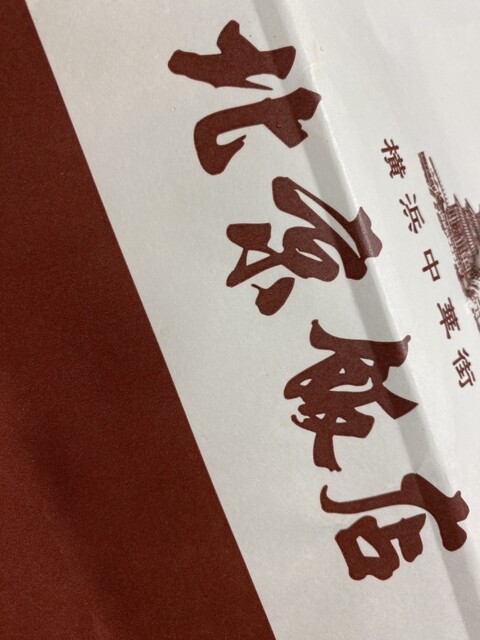 横浜中華街
北京飯店